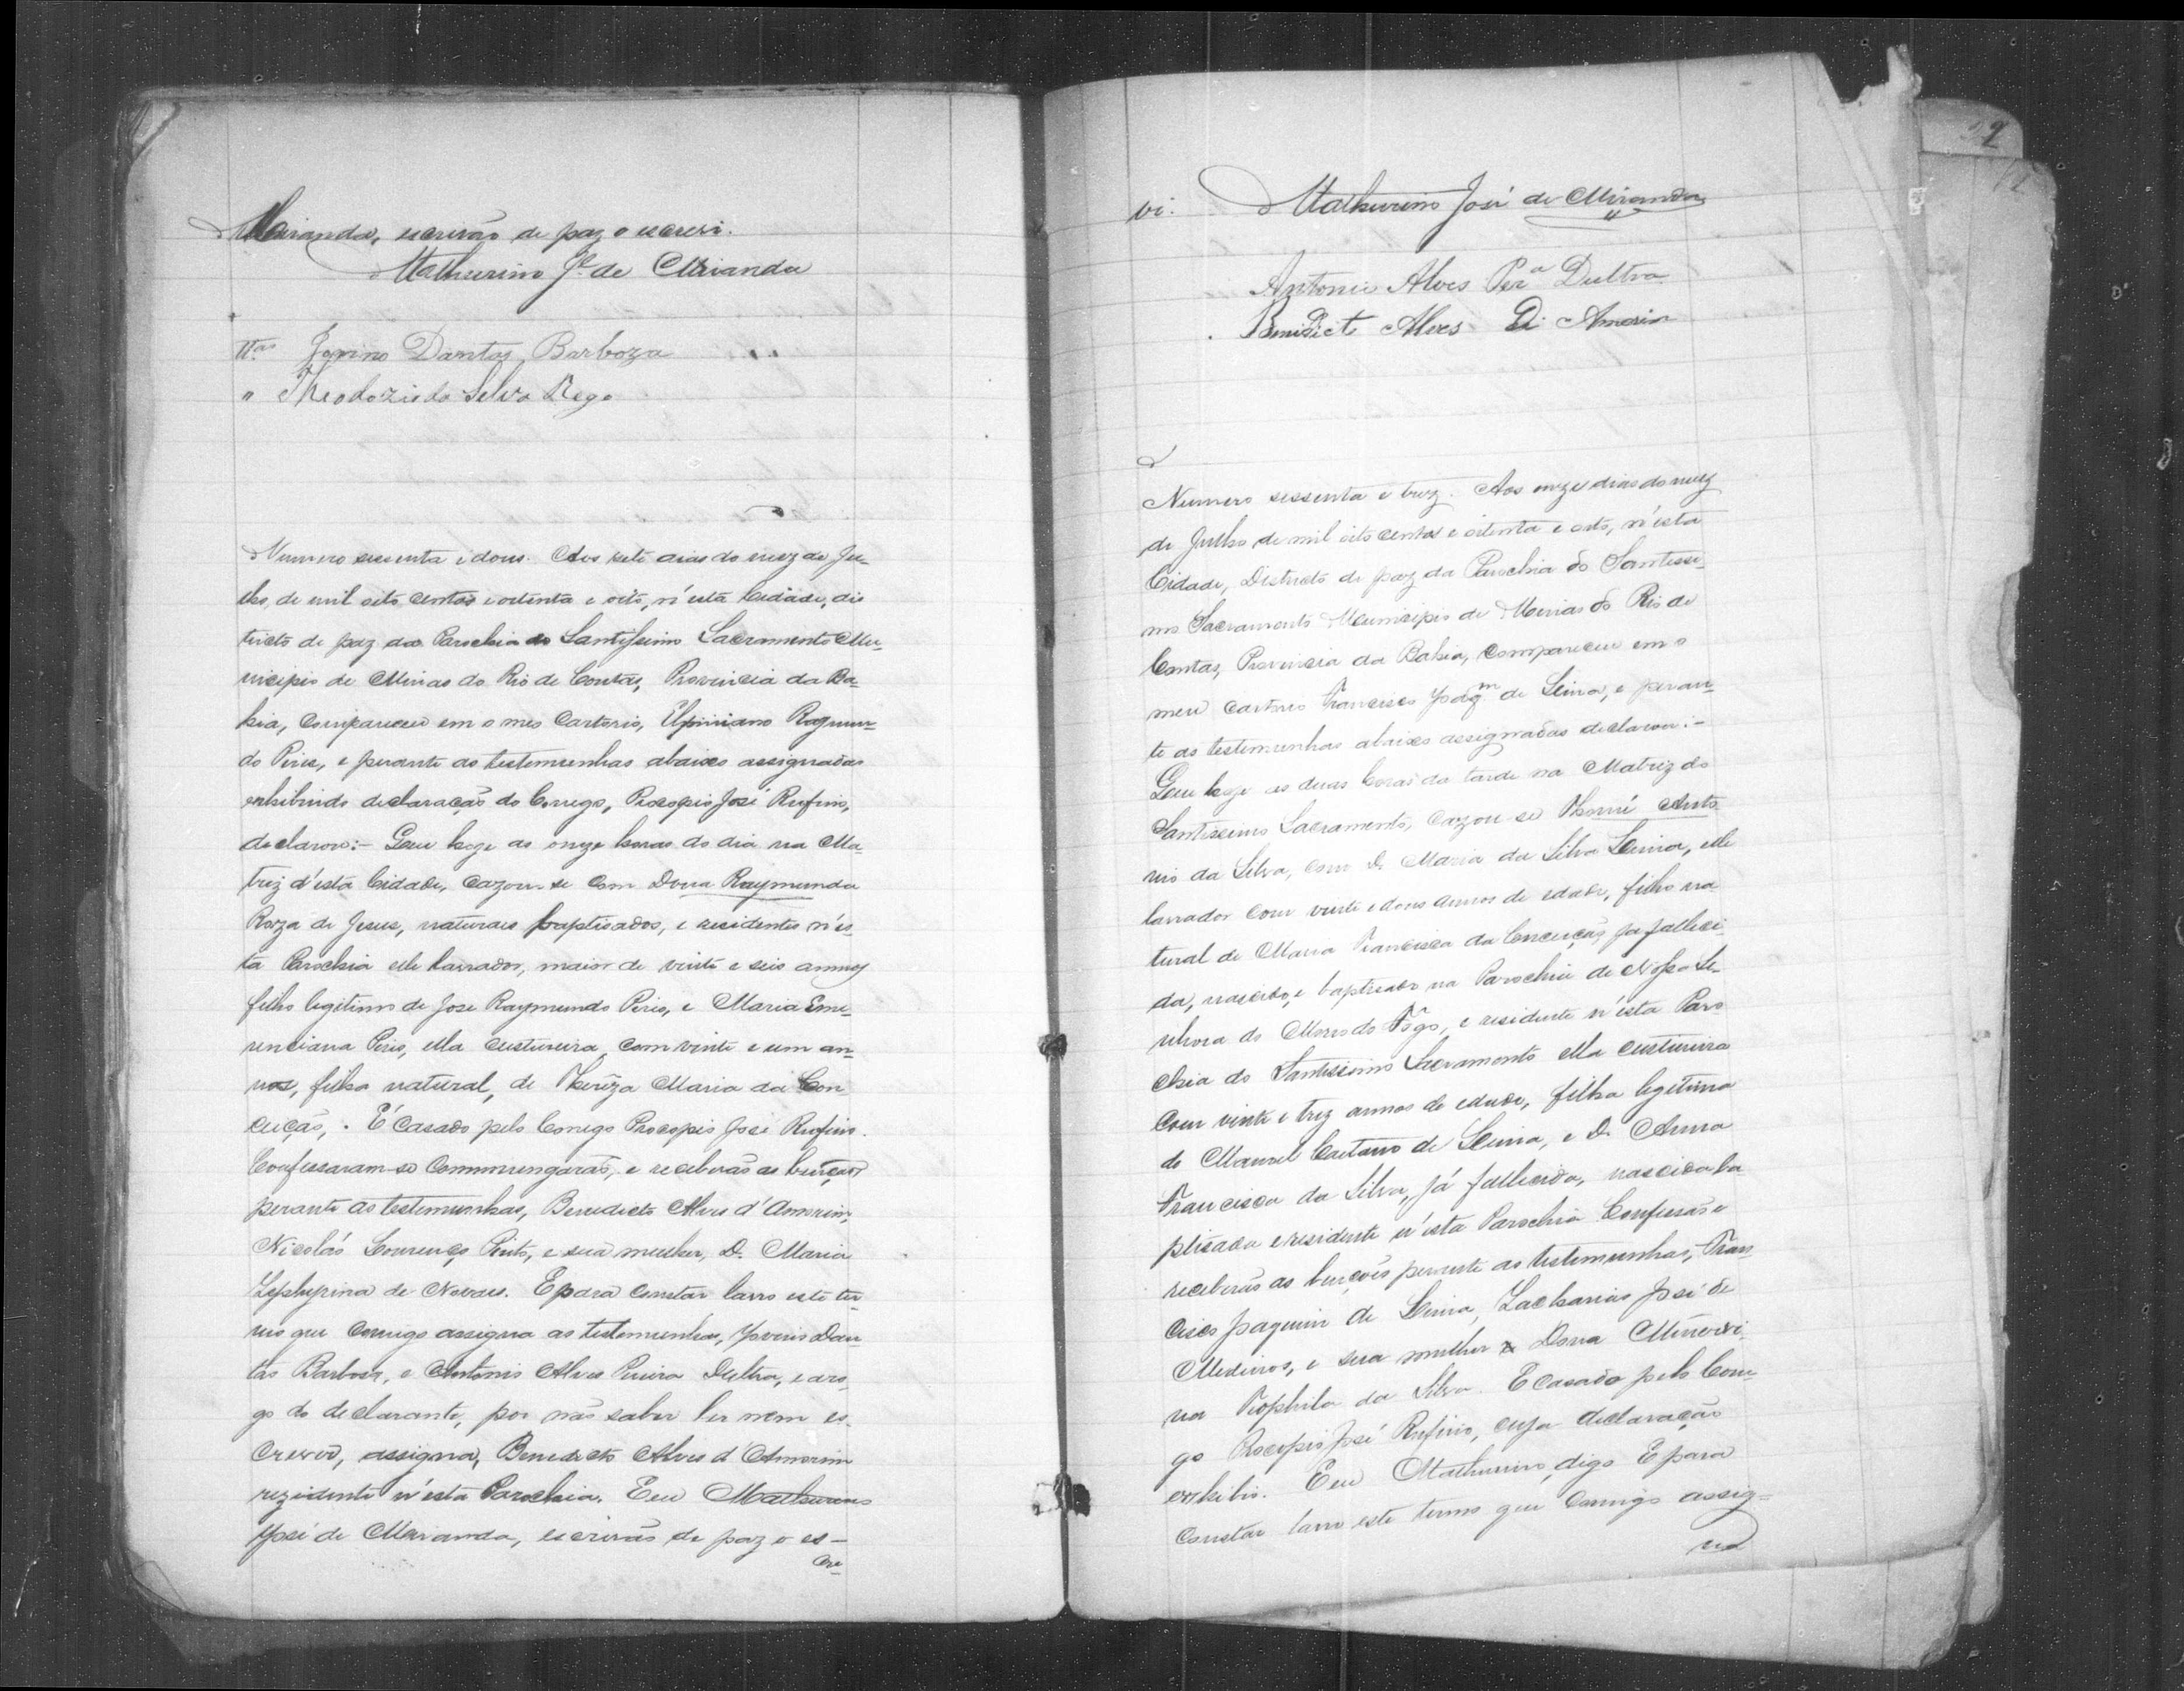 Miranda, escrivão de paz o escrevi.
Mathurino Jé de Miranda
Ttas Jovino Dantas Barboza
" Theodozio da Silva Rego
Numero sessenta e dous. Aos sete dias do mez de Ju-
lho, de mil oito centos e oitenta e oito, n'esta Cidade, dis
tricto de paz da Parochia do Santissimo Sacramento Mu-
nicipio de Minas do Rio de Contas, Provincia da Ba-
hia, compareceu em o meo Cartorio, Ulpiniano Raymun-
do Pires, e perante as testemunhas abaixo assignadas
exhibindo declaração do Conego, Procopio José Rufino,
declarou:- Que hoje as onze horas do dia na Ma-
triz d'esta Cidade, cazou-se com Dona Raymunda
Roza de Jesus, naturaes baptisados, e residentes n'es-
ta Parochia elle lavrador, maior de vinte e seis annos
filho legitimo de José Raymundo Pires, e Maria Eme-
renciana Pires, ella custureira, com vinte e um an-
nos, filha natural, de Thereza Maria da Con-
ceição, . É Casado pelo Conego Procopio José Rufino.
Confessaram-se Commungarão, e receberão as bençãos
perante as testemunhas, Benedicto Alves d'Amorim,
Nicoláo Lourenço Pinto, e sua mulher, D. Maria
Zephyrina de Novaes. E para constar lavro este ter-
mo que comigo assigna as testemunhas, Jovino Dan-
tas Barbosa, e Antonio Alves Pereira Dultra, e aro-
go do declarante, por não saber ler nem es-
crever, assigna, Benedicto Alves d'Amorim
rezidente n'esta Parochia. Eeu Mathurino
José de Miranda, escrivão de paz o es-
cre
vi. Mathurino José de Miranda
Antonio Alves Pera Dultra
Benidicto Alves Di Amorim
Numero sessenta e trez. Aos onze dias do mez
de Julho de mil oito centos e oitenta e oito, n'esta
Cidade, Districto de paz da Parochia do Santissi-
mo Sacramento Municipio de Minas do Rio de
Contas, Provincia da Bahia, compareceu em o
meu cartorio Francisco Joaqm de Lima, e peran-
te as testemunhas abaixo assignadas declarou:-
Que hoje as duas horas da tarde na Matriz do
Santissimo Sacramento, cazou-se Thomé Anto
nio da Silva, com D. Maria da Silva Lima, elle
lavrador com vinte e dous annos de edade, filho na
tural de Maria Francisca da Conceição ja falleci-
da, nascido, e baptisado na Parochia de Nossa Se-
nhora do Morro do Fogo, e residente n'esta Paro
chia do Santissimo Sacramento ella custureira
com vinte e trez annos de edade, filha legitima
de Manoel Caetano de Lima, e D. Anna
Francisca da Silva, já fallecida, nascida ba
ptisada e residente n'esta Parochia Confessarão e
receberão as bençoes perante as testemunhas, Fran-
cisco Joaquim de Lima, Zacharias José de
Medeiros, e sua mulher Dona Minervi-
na Theophila da Silva. E Casado pelo Cone-
go Procopio José Rufino, cuja declaração
exhibio. Eeu Mathurino, digo E para
constar lavro este termo que comigo assig-
na